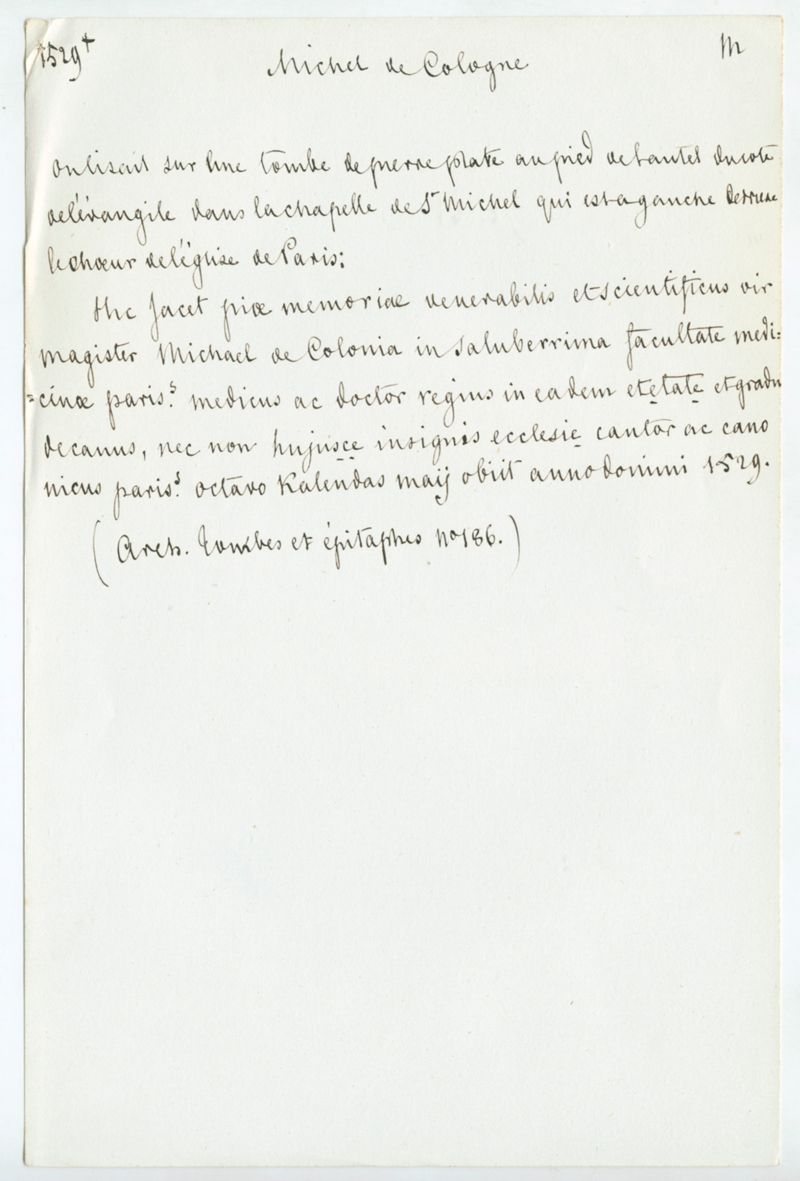 1529+
Michel de Cologne
M
On lisait sur une tombe de pierre plate au pied de l'autel du coté
de l'évangile dans la chapelle de St Michel qui est a gauche derriere
le chœur de l'église de Paris:
Hic Jacet piæ memoriæ venerabilis et scientificus vir
magister Michael de Colonia in saluberrima facultate medi=
=cinæ paris.s medicus ac doctor regius in eadem et etate et gradu
decanus, nec non hujusce insignis ecclesie cantor ac cano
nicus paris.s octavo Kalendas maij obiit anno domini 1529.
(Arch. Tombes et épitaphes No 186.)